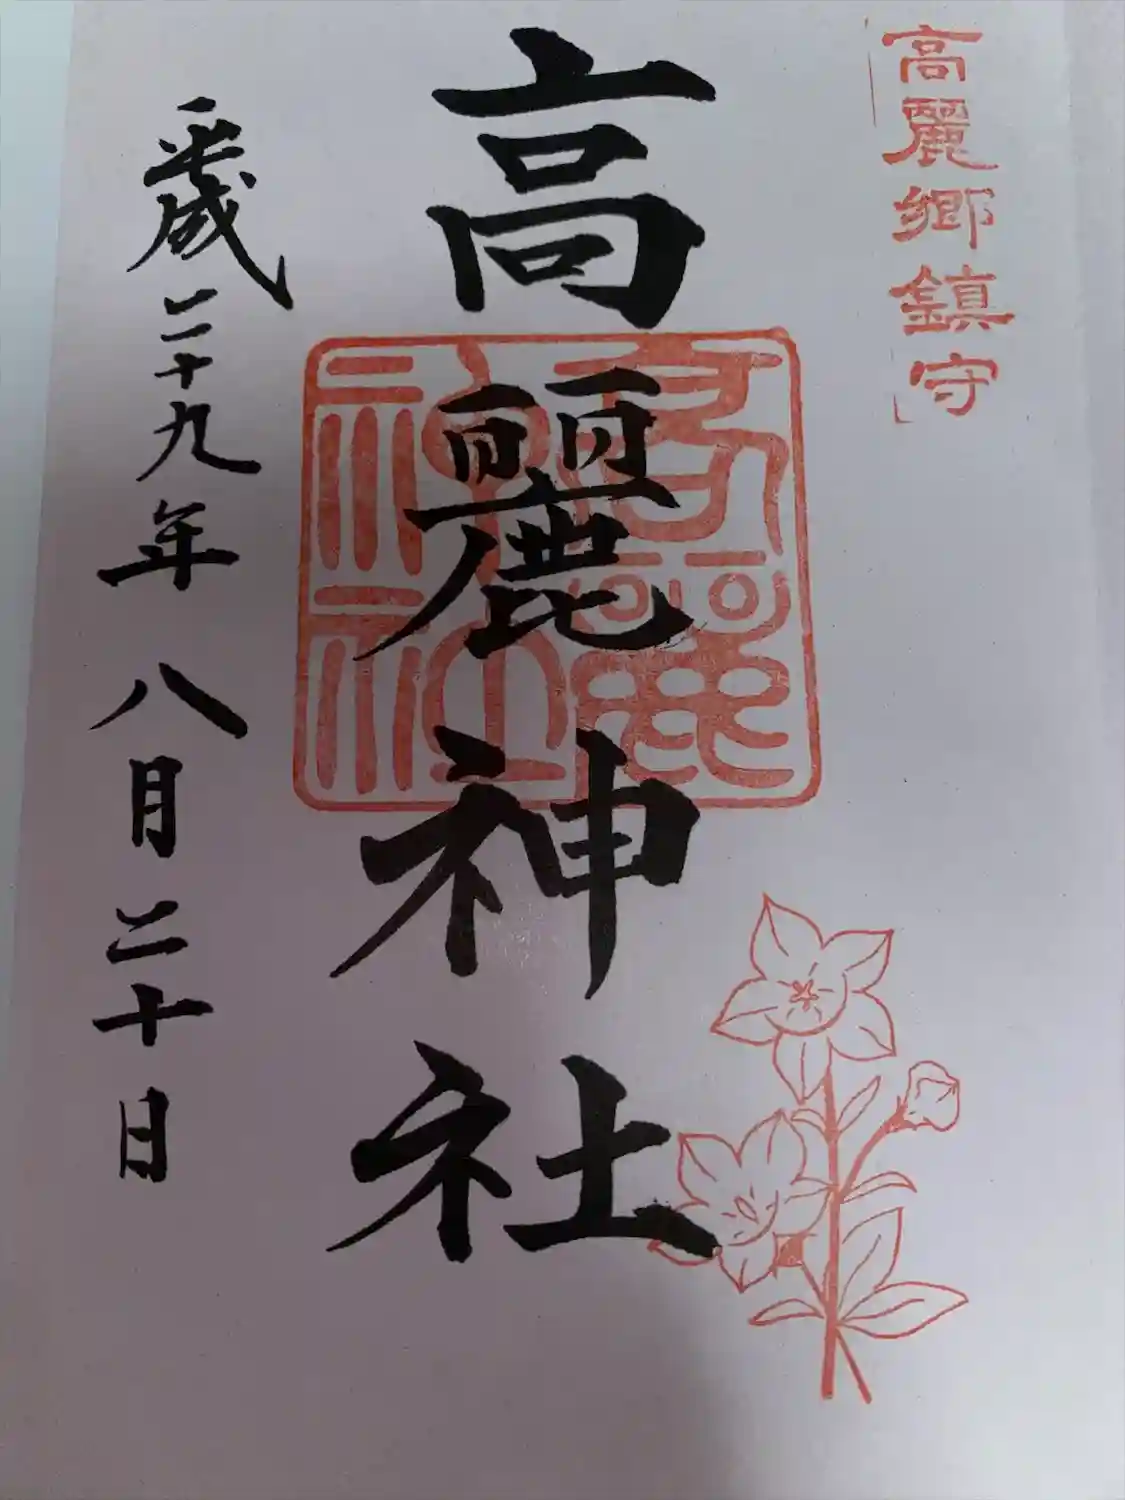 高麗郷鎮守
高麗神社
高麗神社
平成二十九年八月二十日